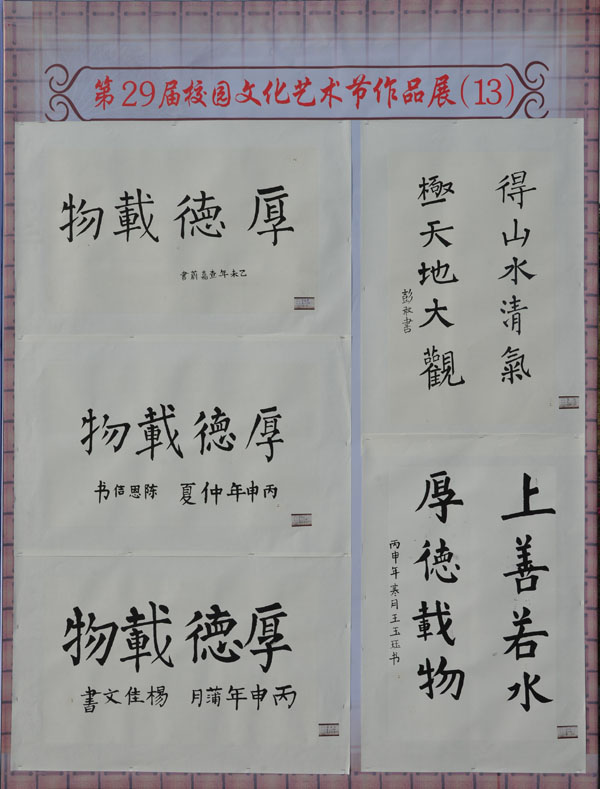 第29届校园文化艺术节作品展(13)
厚德載物
乙未年查嘉蔚書
厚德載物
丙申年仲夏 陈思佶书
厚德載物
丙申年蒲月 楊佳文書
得山水清氣
極天地大觀
上善若水
厚德載物
丙申年寒月王玉珏书